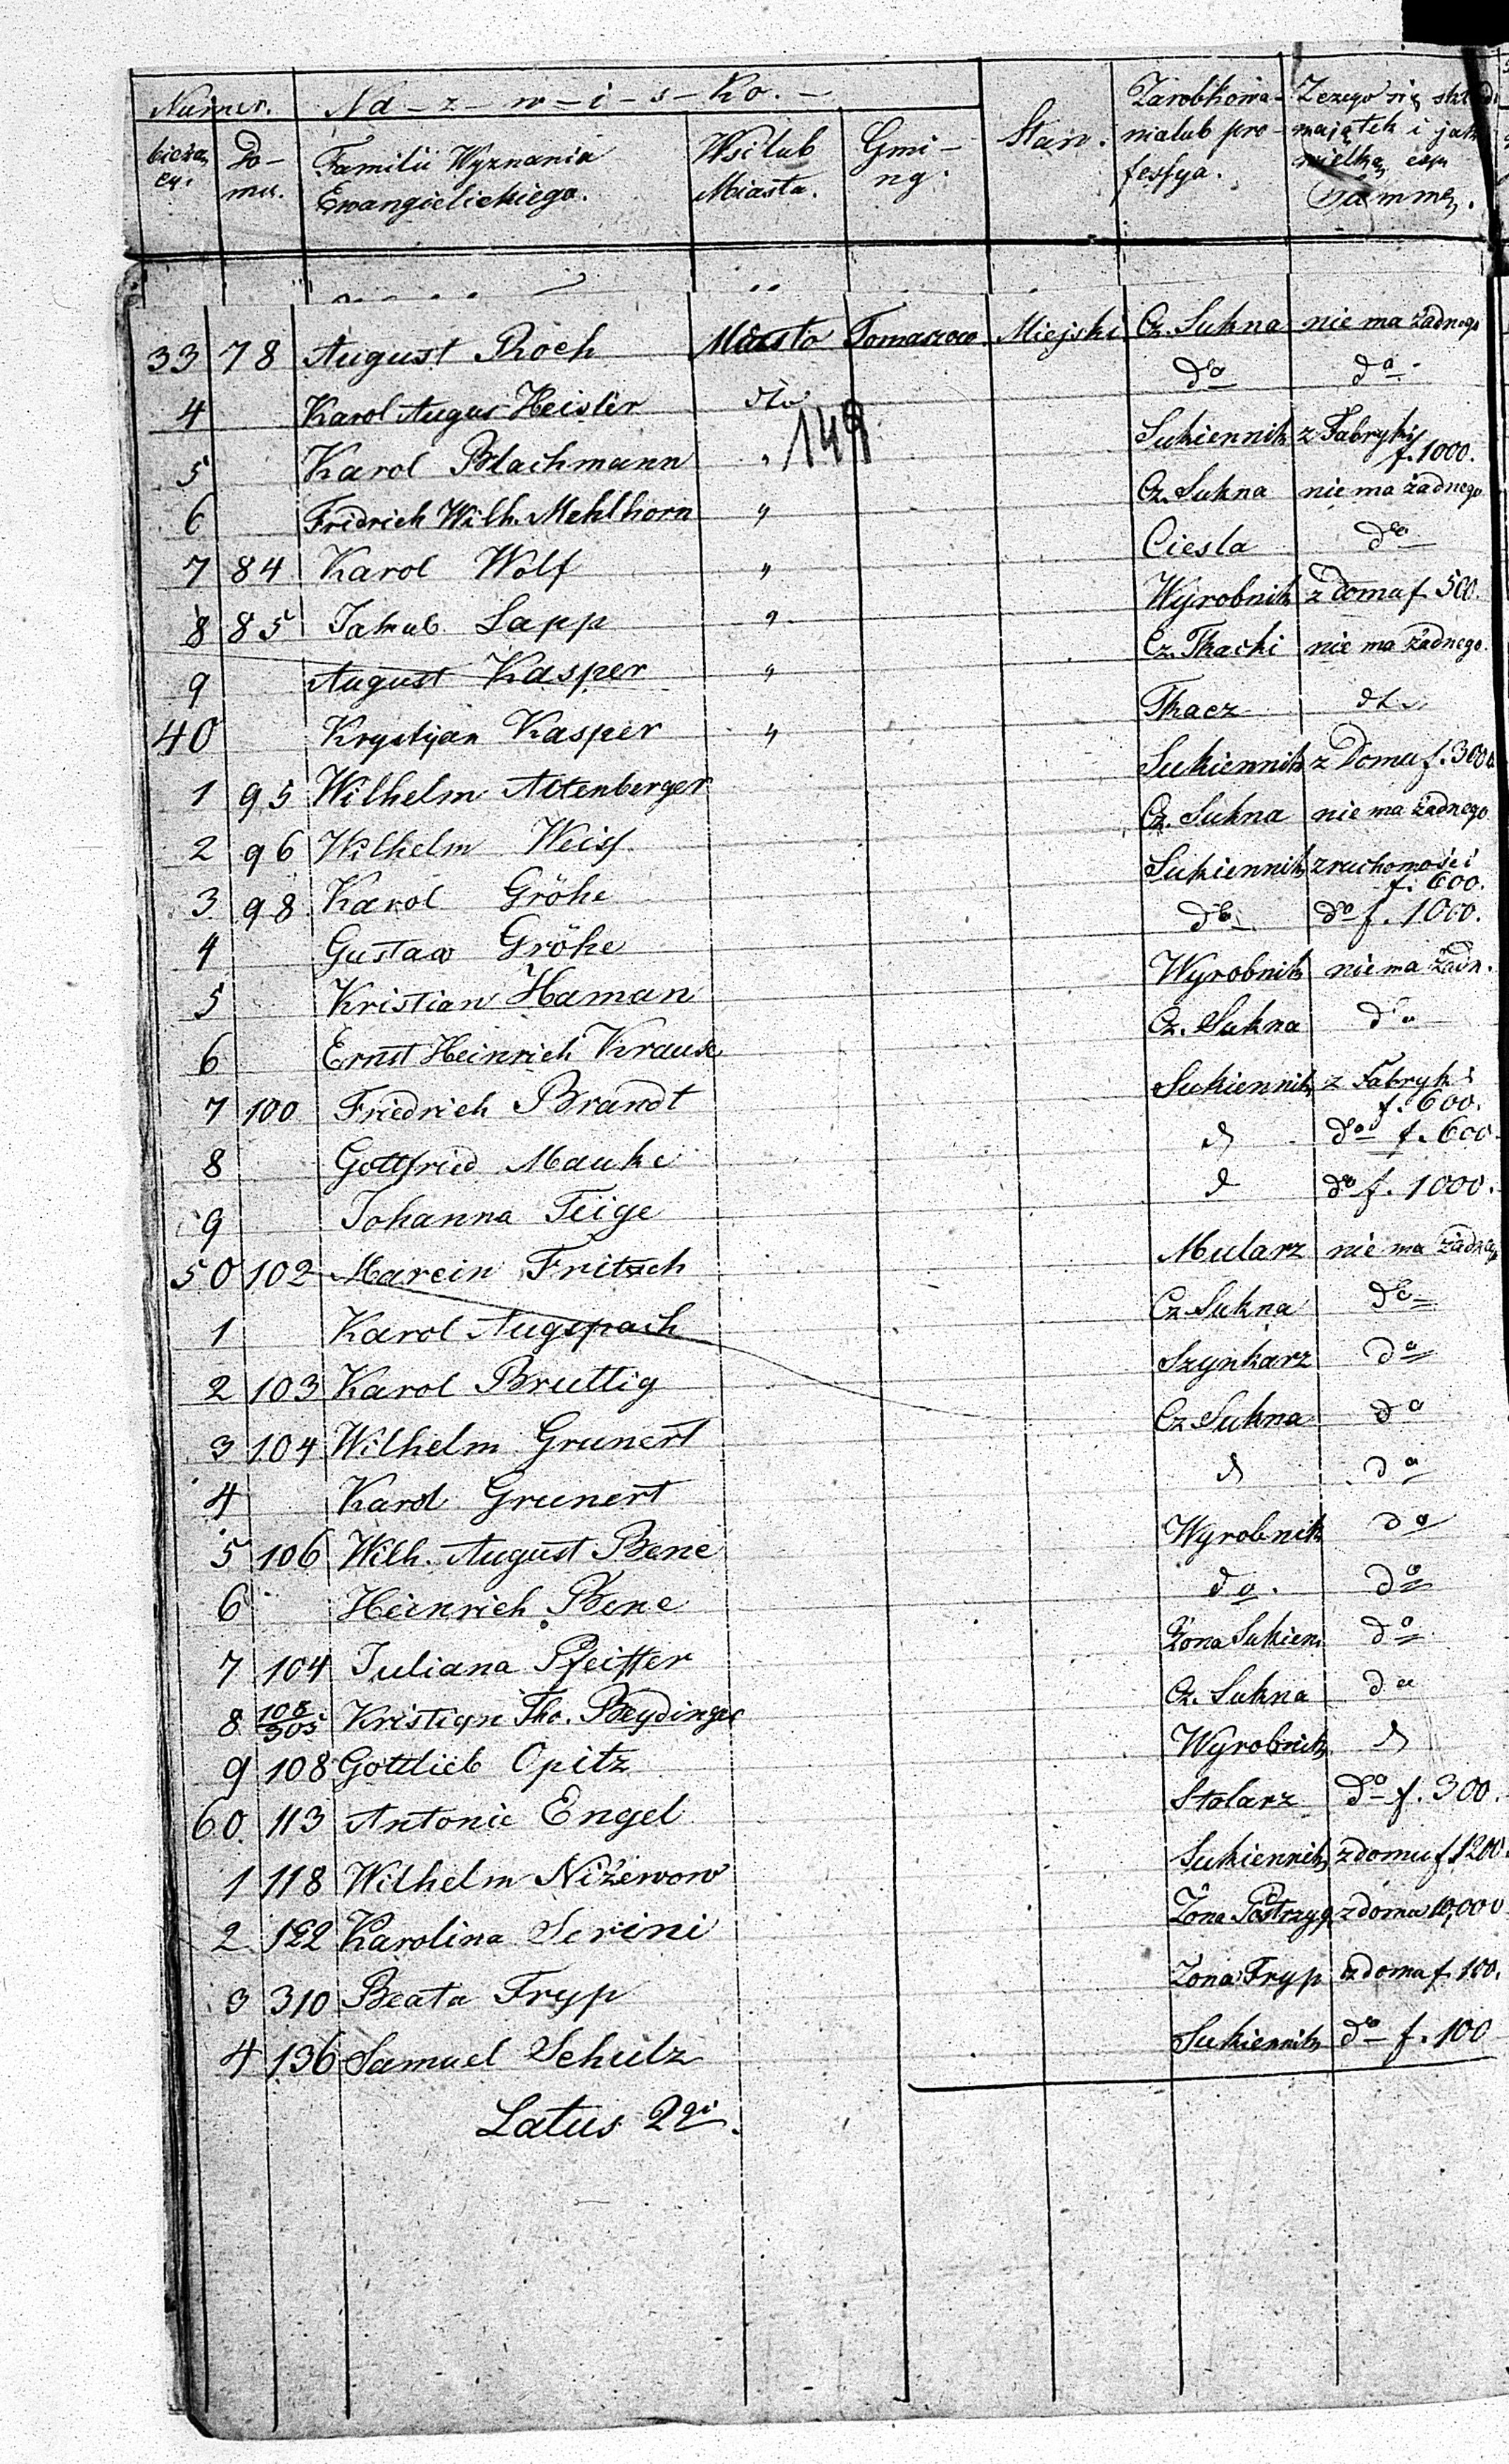 Numer. Na-z-w-i-s-ko.- Stan. Zarobkowa- Z czego się skł
bieżą Do- Familii Wyznania Wsi lub Gmi- nia lub pro- majątek i jak
cy. mu. Ewangielickiego. Miasta. ny. fessya. wielką
Summę.
33 78 August Roch Miasto Tomaszow Miejski Cz. Sukna nie ma żadnego
4 Karol Augus Heisler dto do do
149
5 Karol Blachmann " Sukiennik z Fabryki f. 1000.
6 Fridrich Wilh. Mehlhorn " Cz. Sukna nie ma żadnego
7 84 Karol Wolf " Ciesla do
8 85 Jakub Lapp " Wyrobnik z Domu f. 500.
9 August Kasper " Cz. Tkacki nie ma żadnego.
40 Krystyan Kasper " Tkacz dto
1 95 Wilhelm Attenberger Sukiennik z Domu f. 3000
2 96 Wilhelm Weiss Cz. Sukna nie ma żadnego
3 98 Karol Gröhe Sukiennik z ruchomości f. 600.
4 Gustaw Gröhe do do f. 1000.
5 Kristian Haman Wyrobnik nie ma żadn.
6 Ernst Heinrich Krause Cz. Sukna do
7 100 Friedrich Brandt Sukiennik z Fabryki f. 600.
8 Gottfried Mauke d do f. 600
9 Johanna Feige d do f. 1000.
50 102 Marcin Fritsch Mularz nie ma żadnego
1 Karol Augspach Cz Sukna do
2 103 Karol Bruttig Szynkarz do
3 104 Wilhelm Grunert Cz Sukna do
4 Karol Grunert d do
5 106 Wilh. August Bene Wyrobnik do
6 Heinrich Bene do. do
7 104 Juliana Pfeiffer Żona Sukien. do
8 108/305 Kristyan Tho. Beydinger Cz. Sukna do
9 108 Gottlieb Opitz Wyrobnik d
60. 113 Antonie Engel Stolarz do f. 300.
1 118 Wilhelm Niżewow Sukiennik z domu f. 1200.
2 122 Karolina Serini Żona Postrzyg z domu 10,000
3 310 Beata Fryp Żona Fryp z domu f. 100.
4 136 Samuel Schulz Sukiennik do f. 100
Latus 2gi.